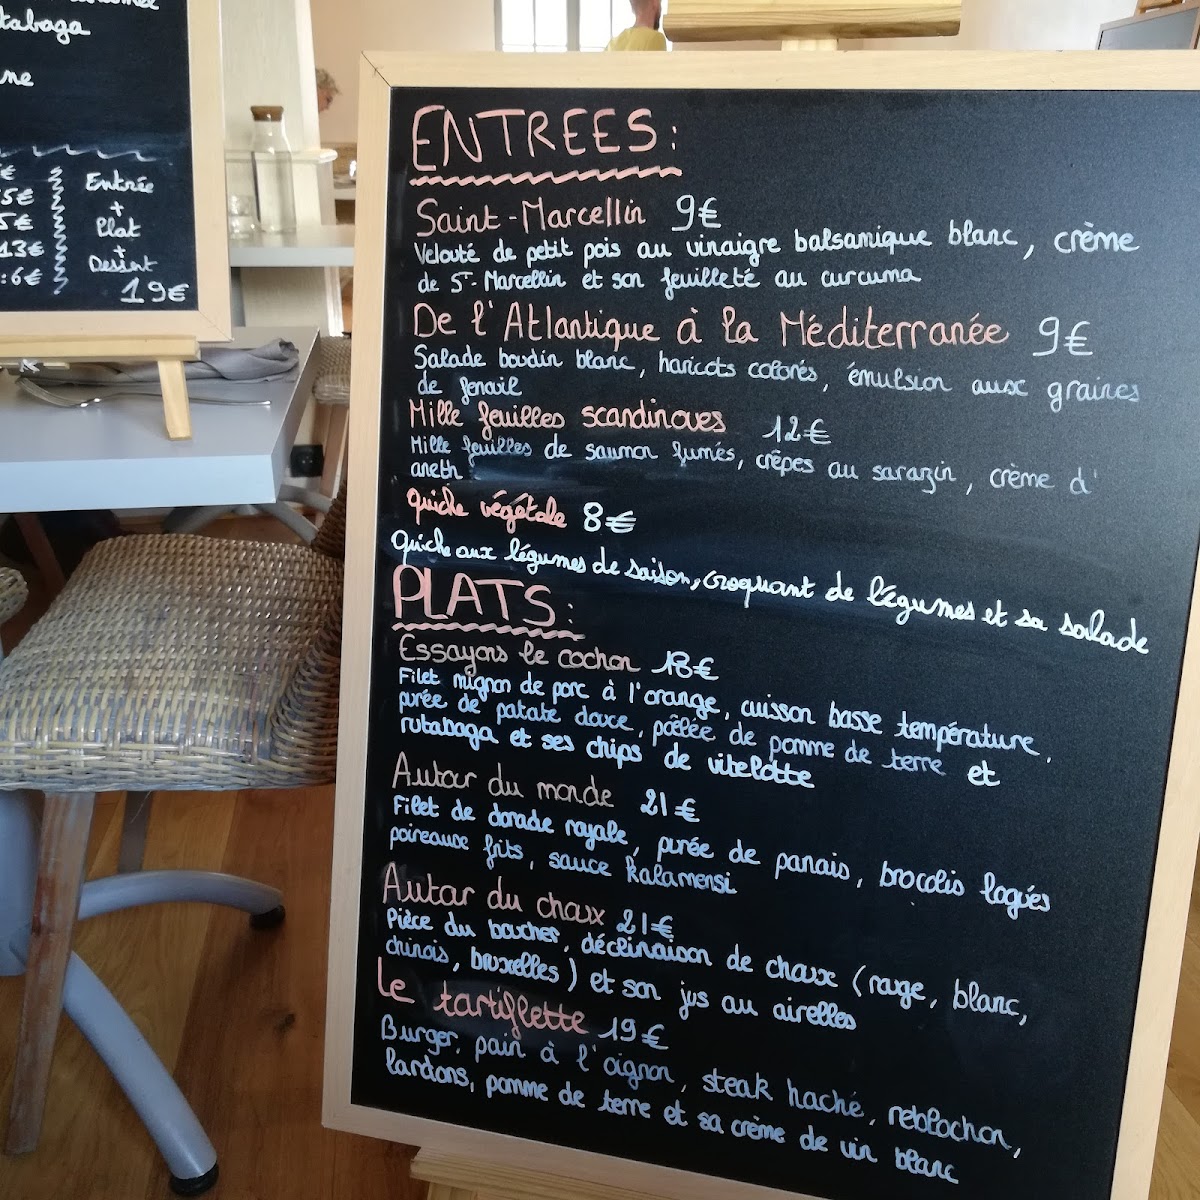 tabaga
ne
5€
5€
13€
:6€
Entrée
+
Plat
+
Desert
19€
ENTREES:
Saint-Marcellin 9€
Velouté de petit pois au vinaigre balsamique blanc, crème
de St-Marcellin et son feuilleté au curcuma
De l'Atlantique à la Méditerranée 9€
Salade boudin blanc, haricots colorés, émulsion aux graines
de fenouil
Mille feuilles scandinaves 12€
Mille feuilles de saumon fumés, crêpes au sarazin, crème d'
aneth
quiche végétale 8€
quiche aux légumes de saison, croquant de légumes et sa salade
PLATS:
Essayons le cochon 18€
Filet mignon de porc à l'orange, cuisson basse température,
purée de patate douce, poêlée de pomme de terre et
rutabaga et ses chips de vitelotte
Autour du monde 21€
Filet de dorade royale, purée de panais, brocolis
poireaux frits, sauce kalamensi
Autour du choux 21€
Pièce du boucher, déclinaison de choux (rouge, blanc,
chinois, bruxelles) et son jus au airelles
Le tartiflette 19€
Burger, pain à l'oignon, steak haché, reblochon,
lardons, pomme de terre et sa crème de vin blanc